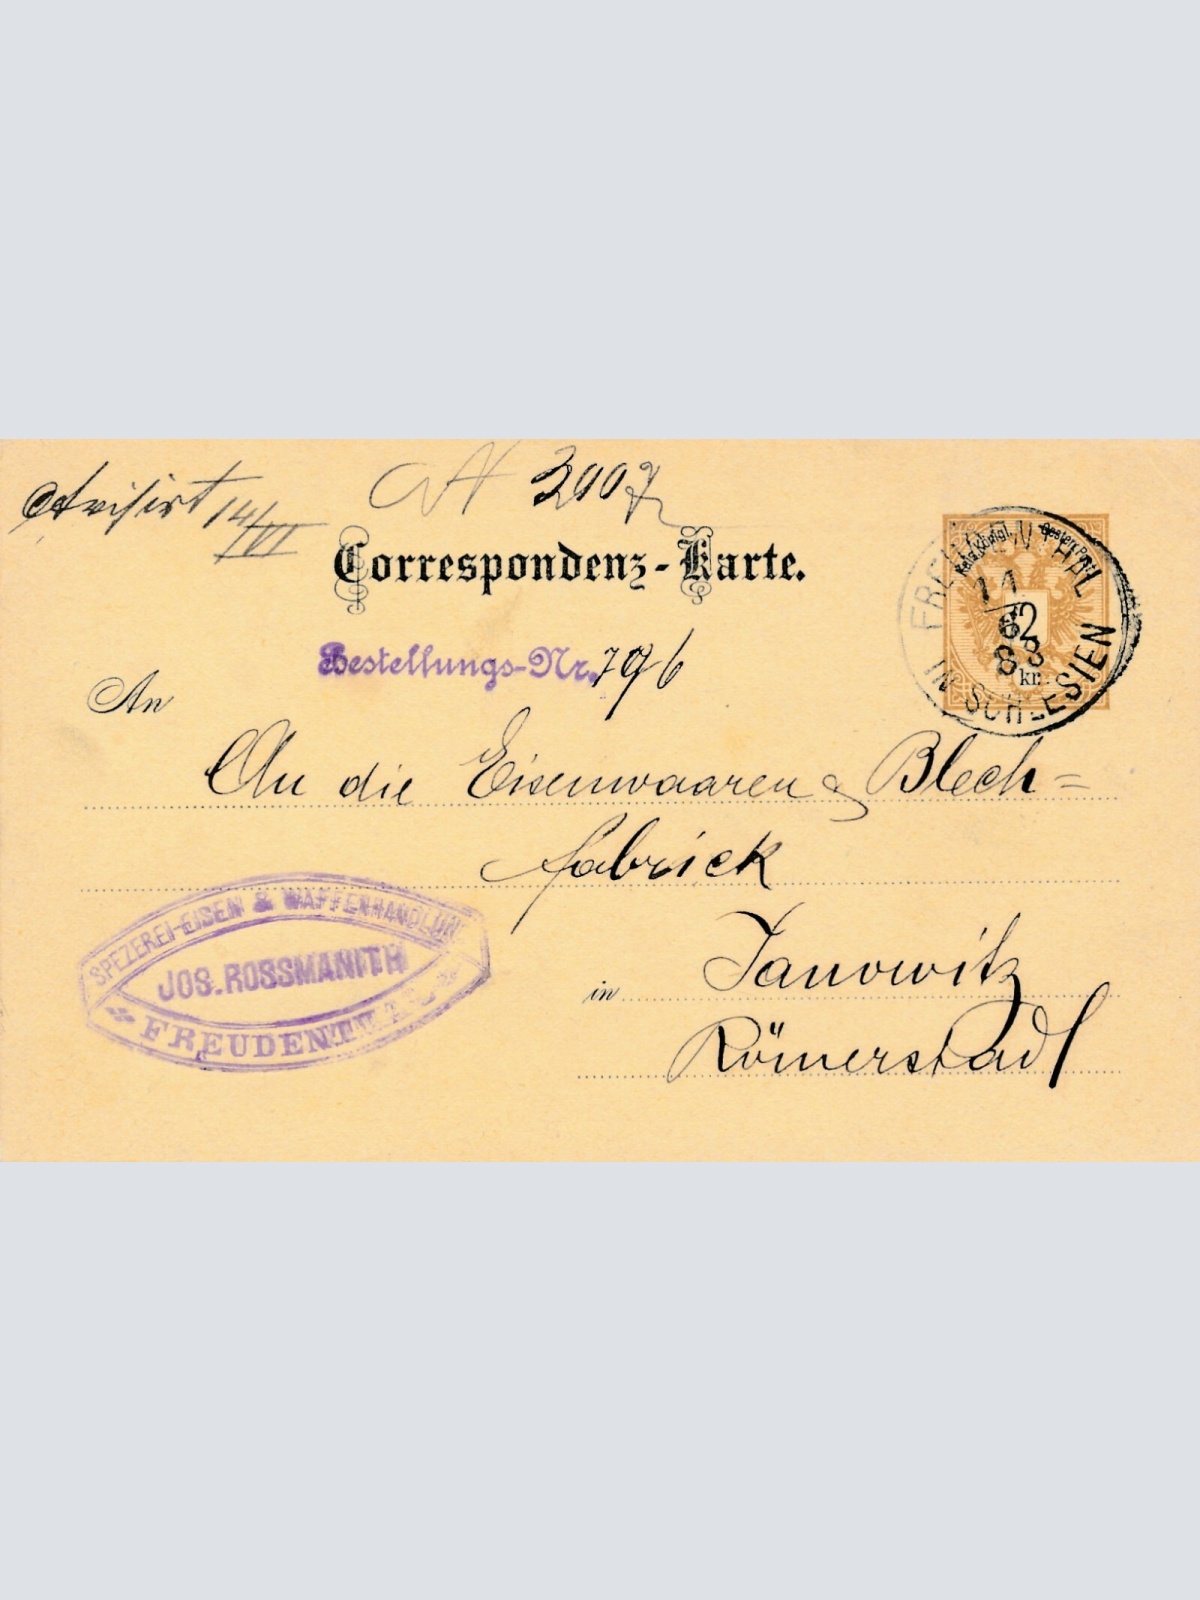 Avisirt 14/VI
N 3007
Correspondenz-Karte.
Kais. Königl. Oesterr. Post
2 kr.
FREUDENTHAL
6
83
IN SCHLESIEN
Bestellungs-Nr. 796
An
An die Eisenwaaren & Blech=
fabrick
in Janowitz
Römerstadt
SPEZEREI-EISEN & WAFFENHANDLUNG
JOS. ROSSMANITH
FREUDENTHAL